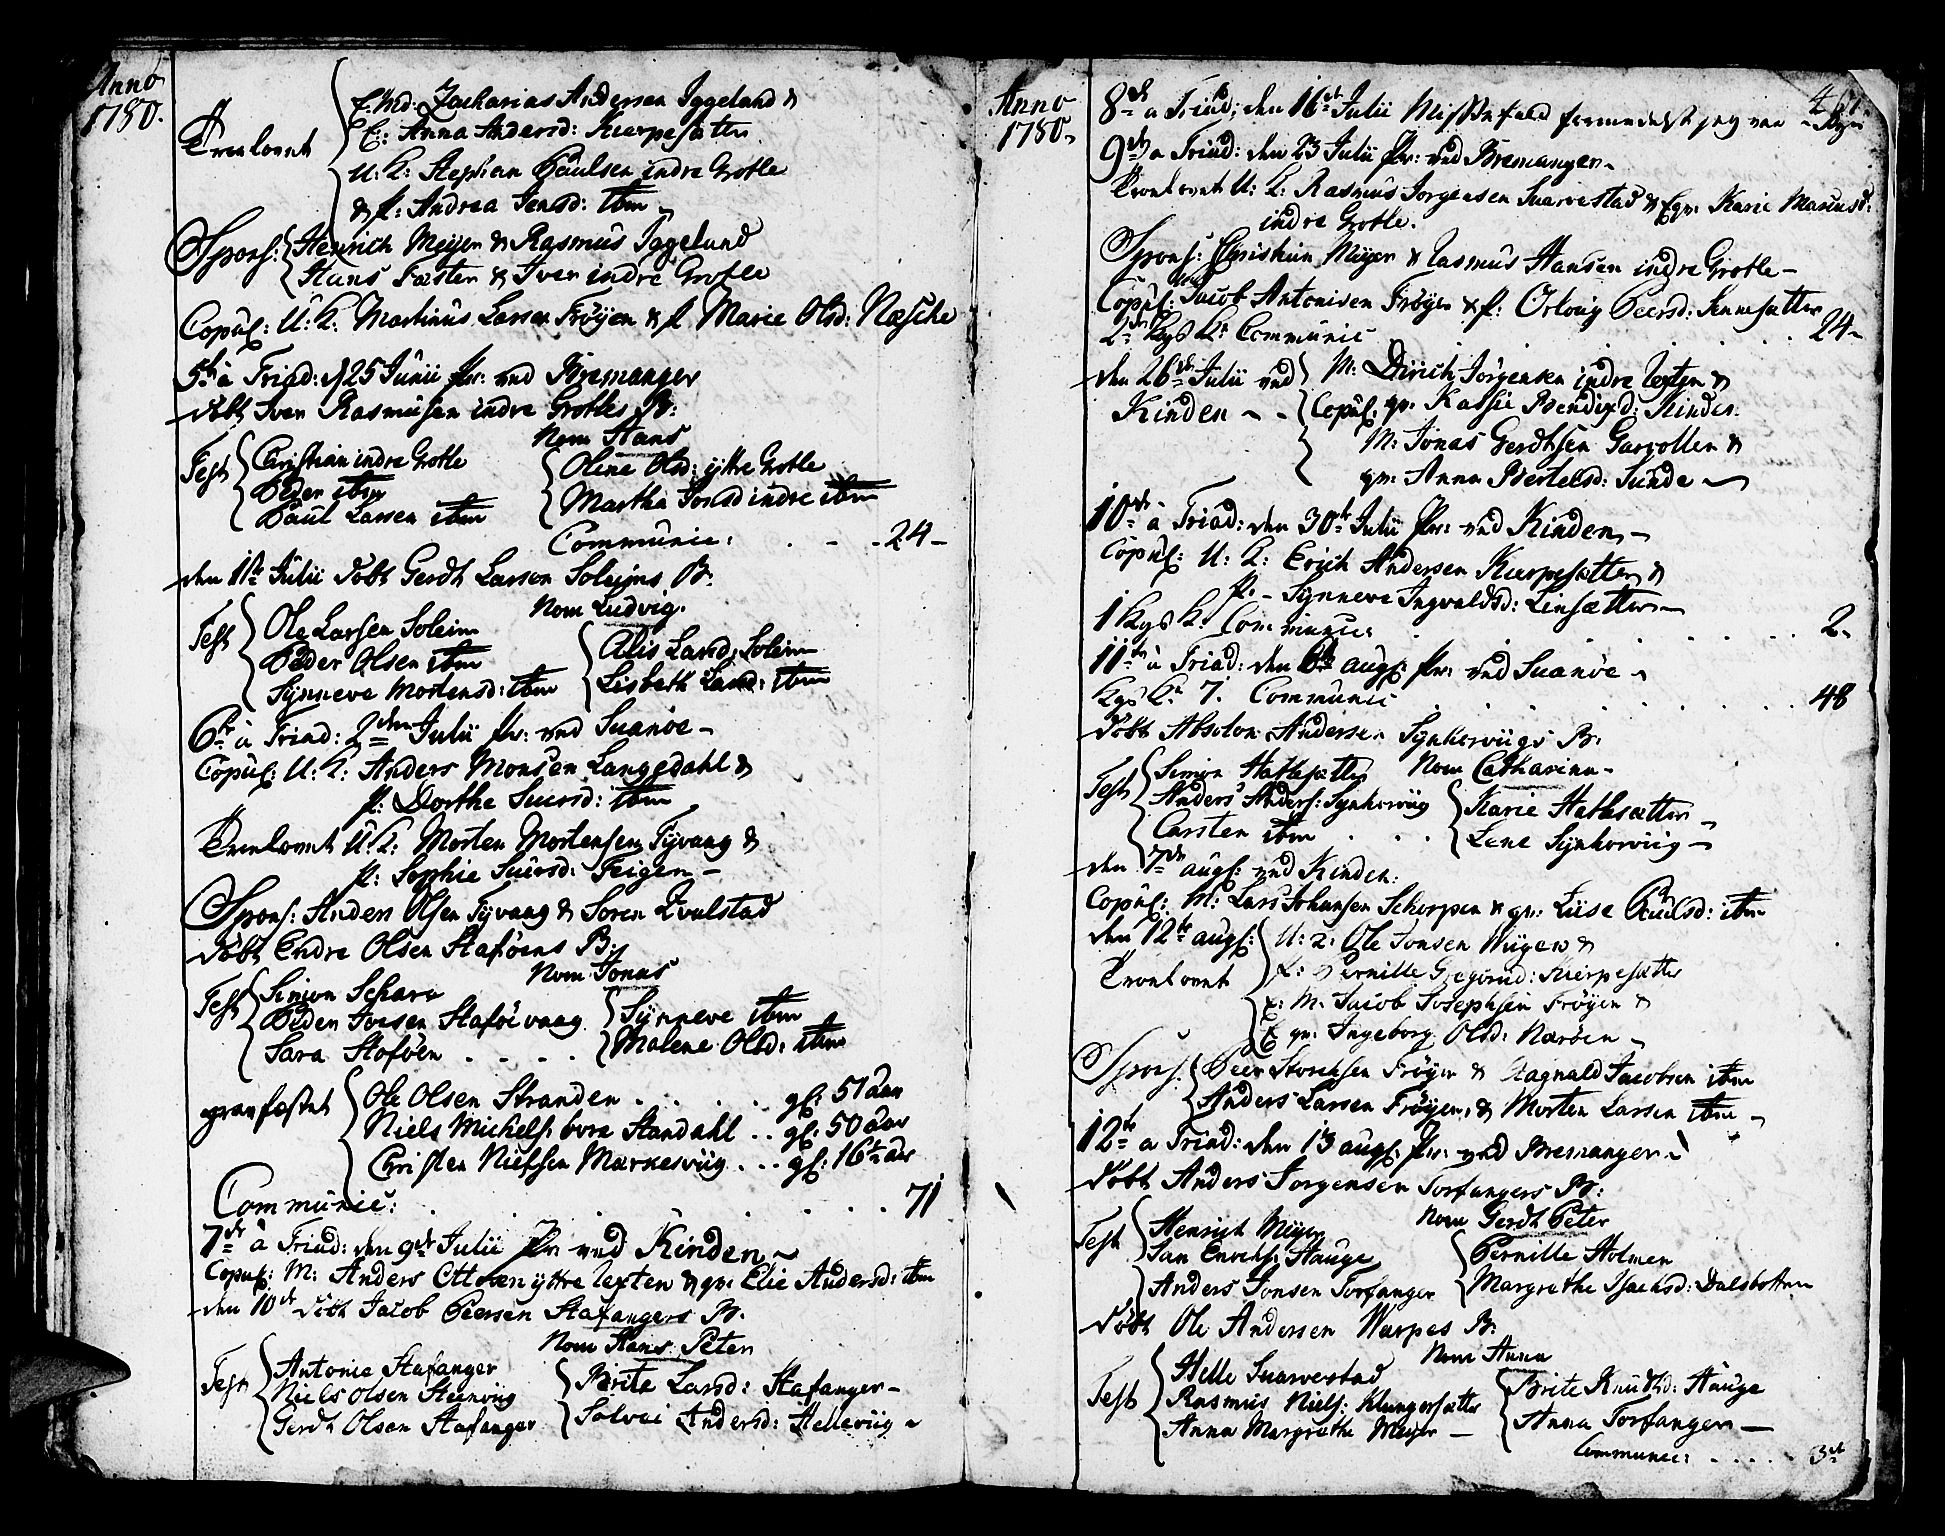 Anno
1780.
E: Md: Zacharias Andersen Iggeland &
E: Anna Andersd: Kierpesætter
Trolovet
U: K: Stephan Paulsen indre Grotle
& p: Andrea Jensd: ibm
Spons: Henrich Meyer & Rasmus Iggeland
Hans Fæster & Iver indre Grotle
Copul: U: K: Martinus Larsen Frøyen & p Marie Olsd: Næsche
5te à Trinit: d 25 Junii Pr: ved Bremanger
døbt Iver Rasmusen indre Grotles B:
Nom Hans
Test Christian indre Grotle
Peder ibm
Paul Larsen ibm
Olene Olsd: yttre Grotle
Martha Jonsd indre ibm
Communic: . - - 24 -
den 11te Julii døbt Gerdt Larsen Soleims B:
Nom Ludvig.
Test Ole Larsen Soleim
Peder Olsen ibm
Synneve Mortensd: ibm
Alis Larsd: Soleim
Lisbeth Larsd: ibm
6te à Trinit: 2den Julii Pr: ved Suanöe -
Copul: U: K: Anders Monsen Langedahl &
p: Dorthe Siursd: ibm
Trolovet U: K: Morten Mortensen Tyvaag &
p: Sophie Siursd: Feigen -
Spons: Anders Olsen Tyvaag & Soren Qvalstad
døbt Endre Olsen Staföens B:
Nom Jonas
Test Simon Schare
Peder Ivesen Staföevaag
Sara Stoföen . . . .
Synneve ibm
Malene Olsd: ibm
Ole Olsen Stranden . . . . . gl: 51 aar
græsfæstet Niels Michels: bore Standahl . . gl: 50 aar
Christen Nielsen Markesviig . . . gl: 16 aar
Communic: . . . . . . . . 71
7de à Trinit: den 9de Julii Pr: ved Kinden ~
Copul: M: Anders Ottesen yttre Lexten & qv: Elie Andersd: ibm
den 10de døbt Jacob Peersen Stafangers B:
Nom Hans Peter
Test Antonie Stafanger
Niels Olsen Steenviig
Gerdt Olsen Stafanger
Brite Larsd: Stafanger -
Solvei Andersd: Helleviig ~
Anno
1780.
8de à Trinit; den 16de Julii Messefald formedelst jeg var Syg
9de à Trinit: den 23 Julii Pr: ved Bremanger -
Trolovet U: K: Rasmus Jorgensen Suarvestad & Eqv: Karie Mariusd:
indre Grotle.
Spons: Christian Meyer & Rasmus Hansen indre Grotle -
Copul: Jacob Antonisen Frøyen & p: Orloug Peersd: Sennesætter
2de Kgs K: Communic . . . . 24 -
den 26de Julii ved
Kinden - -
M: Dirich Jörgensen indre Lexten &
Copul: qv: Kassie Bendixd: Kinden.
M: Jonas Gerdtsen Garvollen &
qv: Anna Bertelsd: Sunde
10de à Trinit: den 30te Julii Pr: ved Kinden, -
Copul: U: K: Erich Andersen Kierpesætter &
p. - Synneve Ingvaldsd: Linsætter -
1 Kgs K. Communic . . . . 2.
11te à Trinit: den 6te augs: Pr: ved Suanöe -
Kgs K: 7. Communic . . . . 48
döbt Absolon Andersen Synherviigs B:
Nom Catharina -
Test Simon Hatlesætter
Anders Anders: Synherviig
Carsten ibm . . .
Karie Hatlesætter -
Lene Synherviig -
den 7de augs: ved Kinden.
Copul: M: Lars Johansen Schorpen & qv: Liise Paulsd: ibm
den 12te augs:
Trolovet
U: K: Ole Jonsen Myren &
p: Pernille Gregoriid: Kierpesætter
E: M: Jacob Josephsen Frøyen &
E qv: Ingeborg Olsd: Naröen -
Spons: Peer Storchsen Frøyen & Ragnald Jacobsen ibm
Anders Larsen Frøyen, & Morten Larsen ibm -
12te à Trinit: den 13 augs: Pr: ved Bremanger -
döbt Anders Jorgensen Torfangers B:
Nom Gerdt Peter
Test Henrich Meyer
Jan Enochs: Hauge
Anders Jonsen Torfanger
Pernille Holmen
Margrethe Isachsd: Dalsbotten
döbt Ole Andersen Warpes B:
Nom Anna
Test Helle Suarvestad
Rasmus Niels: Klungersætter
Anna Margrethe Meyer -
Brite Knudsd: Hauge
Anna Torfangen -
Communic: . . . . .